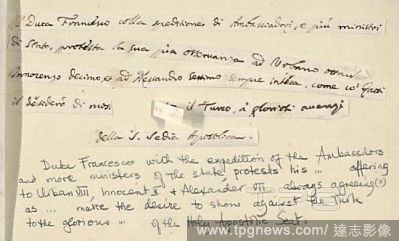 Il Duca Francesco colla spedizione di Ambasciadori, e più ministri
di Stato, protesta la sua pia osservanza ad Urbano
Innocenzo decimo, et ad Alessandro settimo sempre intesa, come
il desiderio di mos il Turco, à gloriosi avanzi
della S. Sedia Apostolica.
Duke Francesco with the expedition of the Ambassadors
and more ministers of the state protests his ... offering
to Urban VIII, Innocent X & Alexander VII always agreeing(?)
as ... make the desire to show against the Turk
to the glorious ... of the Holy Apostolic Seat.
www.tpgnews.com/ 達志影像